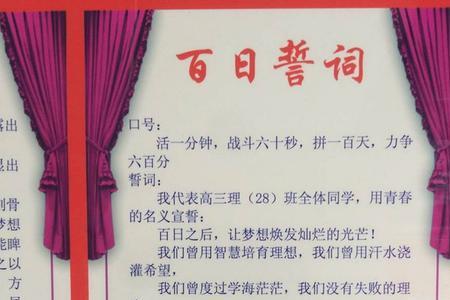 百日誓词
口号:
活一分钟，战斗六十秒，拼一百天，力争
六百分
誓词:
我代表高三理（28）班全体同学，用青春
的名义宣誓:
百日之后，让梦想焕发灿烂的光芒！
我们曾用智慧培育理想，我们曾用汗水浇
灌希望，
我们曾度过学海茫茫，我们没有失败的理
出
出
刻骨
梦想
能睥
之以
方
展